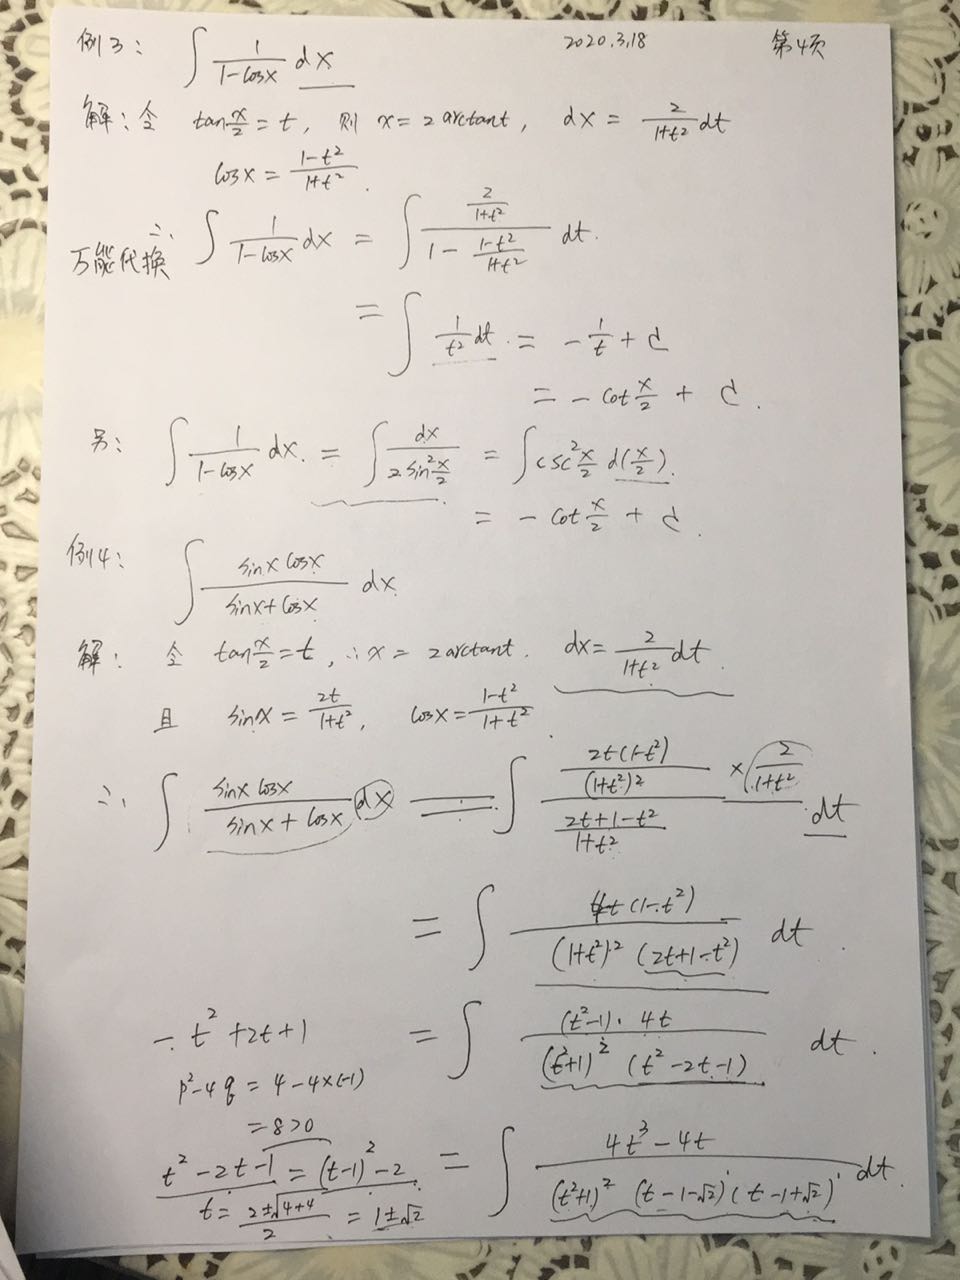 例3: ∫ 1/(1-cosx) dx 2020.3.18 第4页
解: 令 tan x/2 = t, 则 x = 2arctant, dx = 2/(1+t²) dt
cosx = (1-t²)/(1+t²).
∴ ∫ 1/(1-cosx) dx = ∫ (2/(1+t²))/(1 - (1-t²)/(1+t²)) dt.
万能代换
= ∫ 1/t² dt. = - 1/t + C
= - cot x/2 + C.
另: ∫ 1/(1-cosx) dx. = ∫ dx/(2sin² x/2) = ∫ csc² x/2 d(x/2).
= - cot x/2 + C.
例4: ∫ (sinx cosx)/(sinx+cosx) dx
解: 令 tan x/2 = t, ∴ x = 2arctant. dx = 2/(1+t²) dt.
且 sinx = 2t/(1+t²), cosx = (1-t²)/(1+t²).
∴ ∫ (sinx cosx)/(sinx+cosx) dx = ∫ (2t(1-t²)/(1+t²)²)/((2t+1-t²)/(1+t²)) × 2/(1+t²) dt
= ∫ 4t(1-t²)/((1+t²)² (2t+1-t²)) dt.
-t²+2t+1 = ∫ (t²-1)·4t/((t²+1)² (t²-2t-1)) dt.
p²-4q = 4-4×(-1)
= 8>0
t²-2t-1 = (t-1)²-2 = ∫ (4t³-4t)/((t²+1)² (t-1-√2)(t-1+√2)) dt.
t = (2±√(4+4))/2 = 1±√2